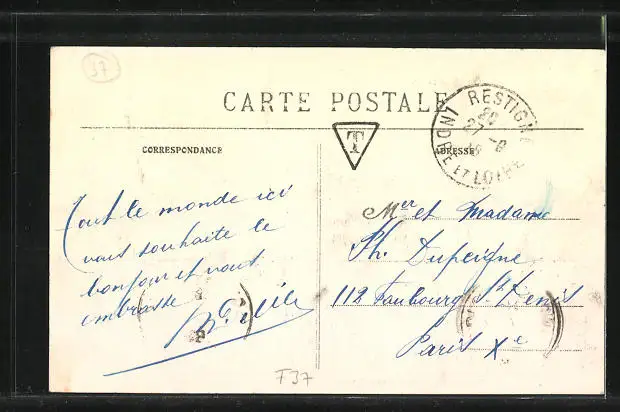 37
CARTE POSTALE
T
RESTIGNÉ
INDRE ET LOIRE
CORRESPONDANCE
ADRESSE
Tout le monde ici
vous souhaite le
bonjour et vous
embrasse
Mer et Madame
Ph. Dupeigne
112 Faubourg St Denis
Paris Xe
T37